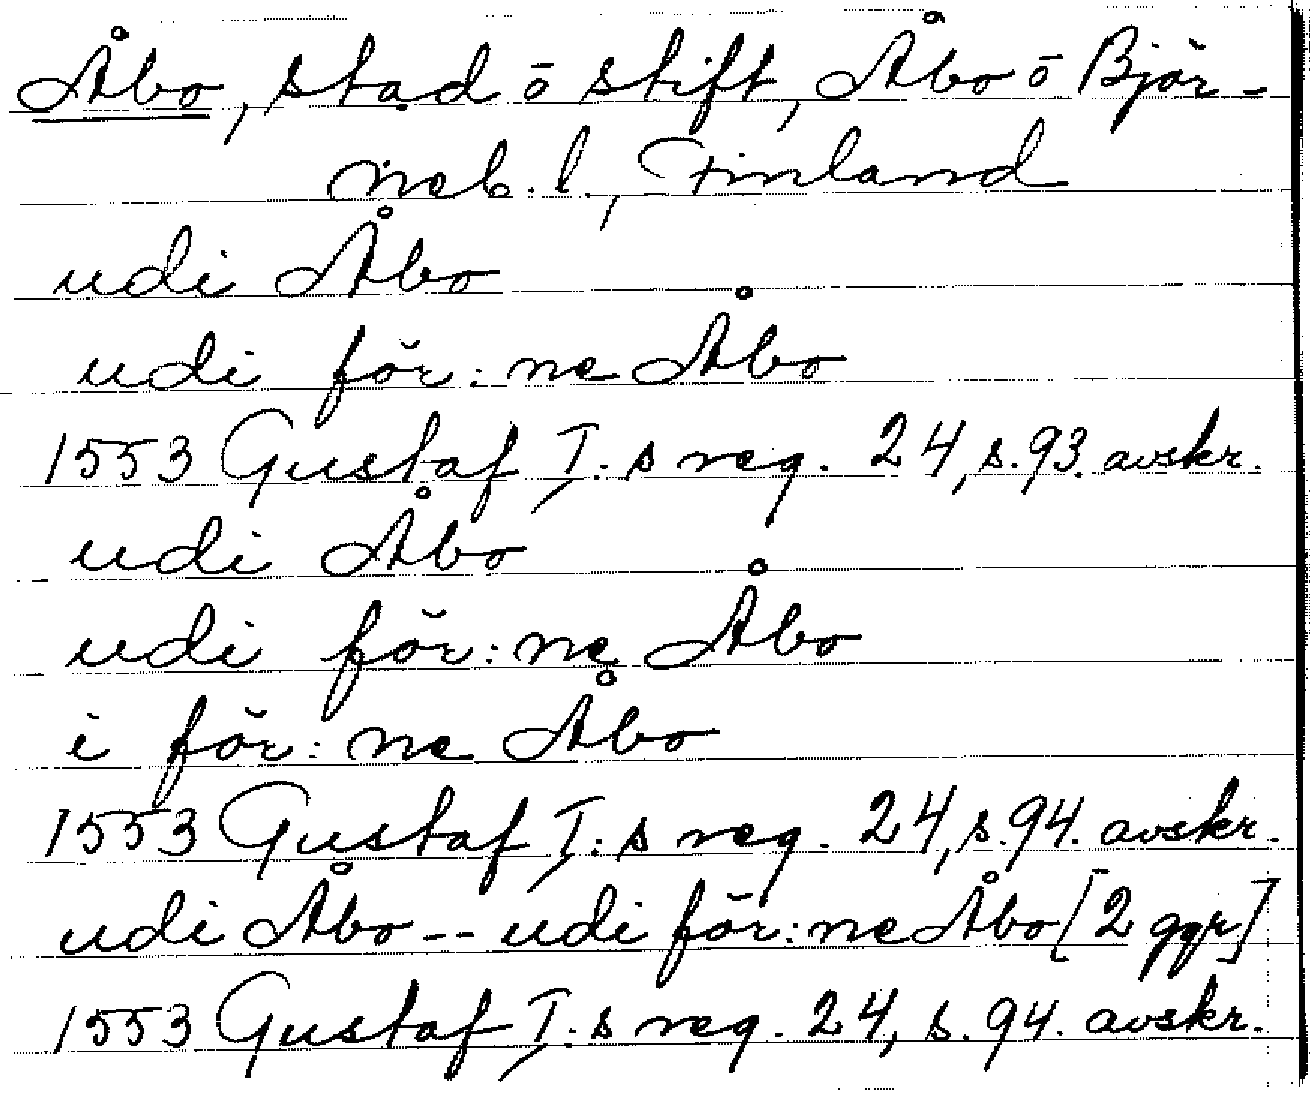 Åbo, stad ō stift, Åbo ō Björ-
neb. l., Finland
udi Åbo
udi för:ne Åbo
1553 Gustaf I:s reg. 24, s. 93. avskr.
udi Åbo
udi för:ne Åbo
i för:ne Åbo
1553 Gustaf I:s reg. 24, s. 94. avskr.
udi Åbo -- udi för:ne Åbo [2 ggr]
1553 Gustaf I:s reg. 24, s. 94. avskr.